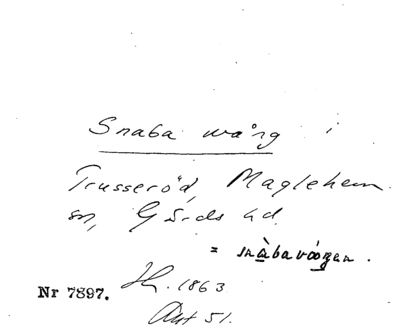 Snaba wång i
Trusseröd, Maglehem
sn, Gärds hd.
= snàbavåŋen.
Nr 7897. Sk. 1863
Akt 51.